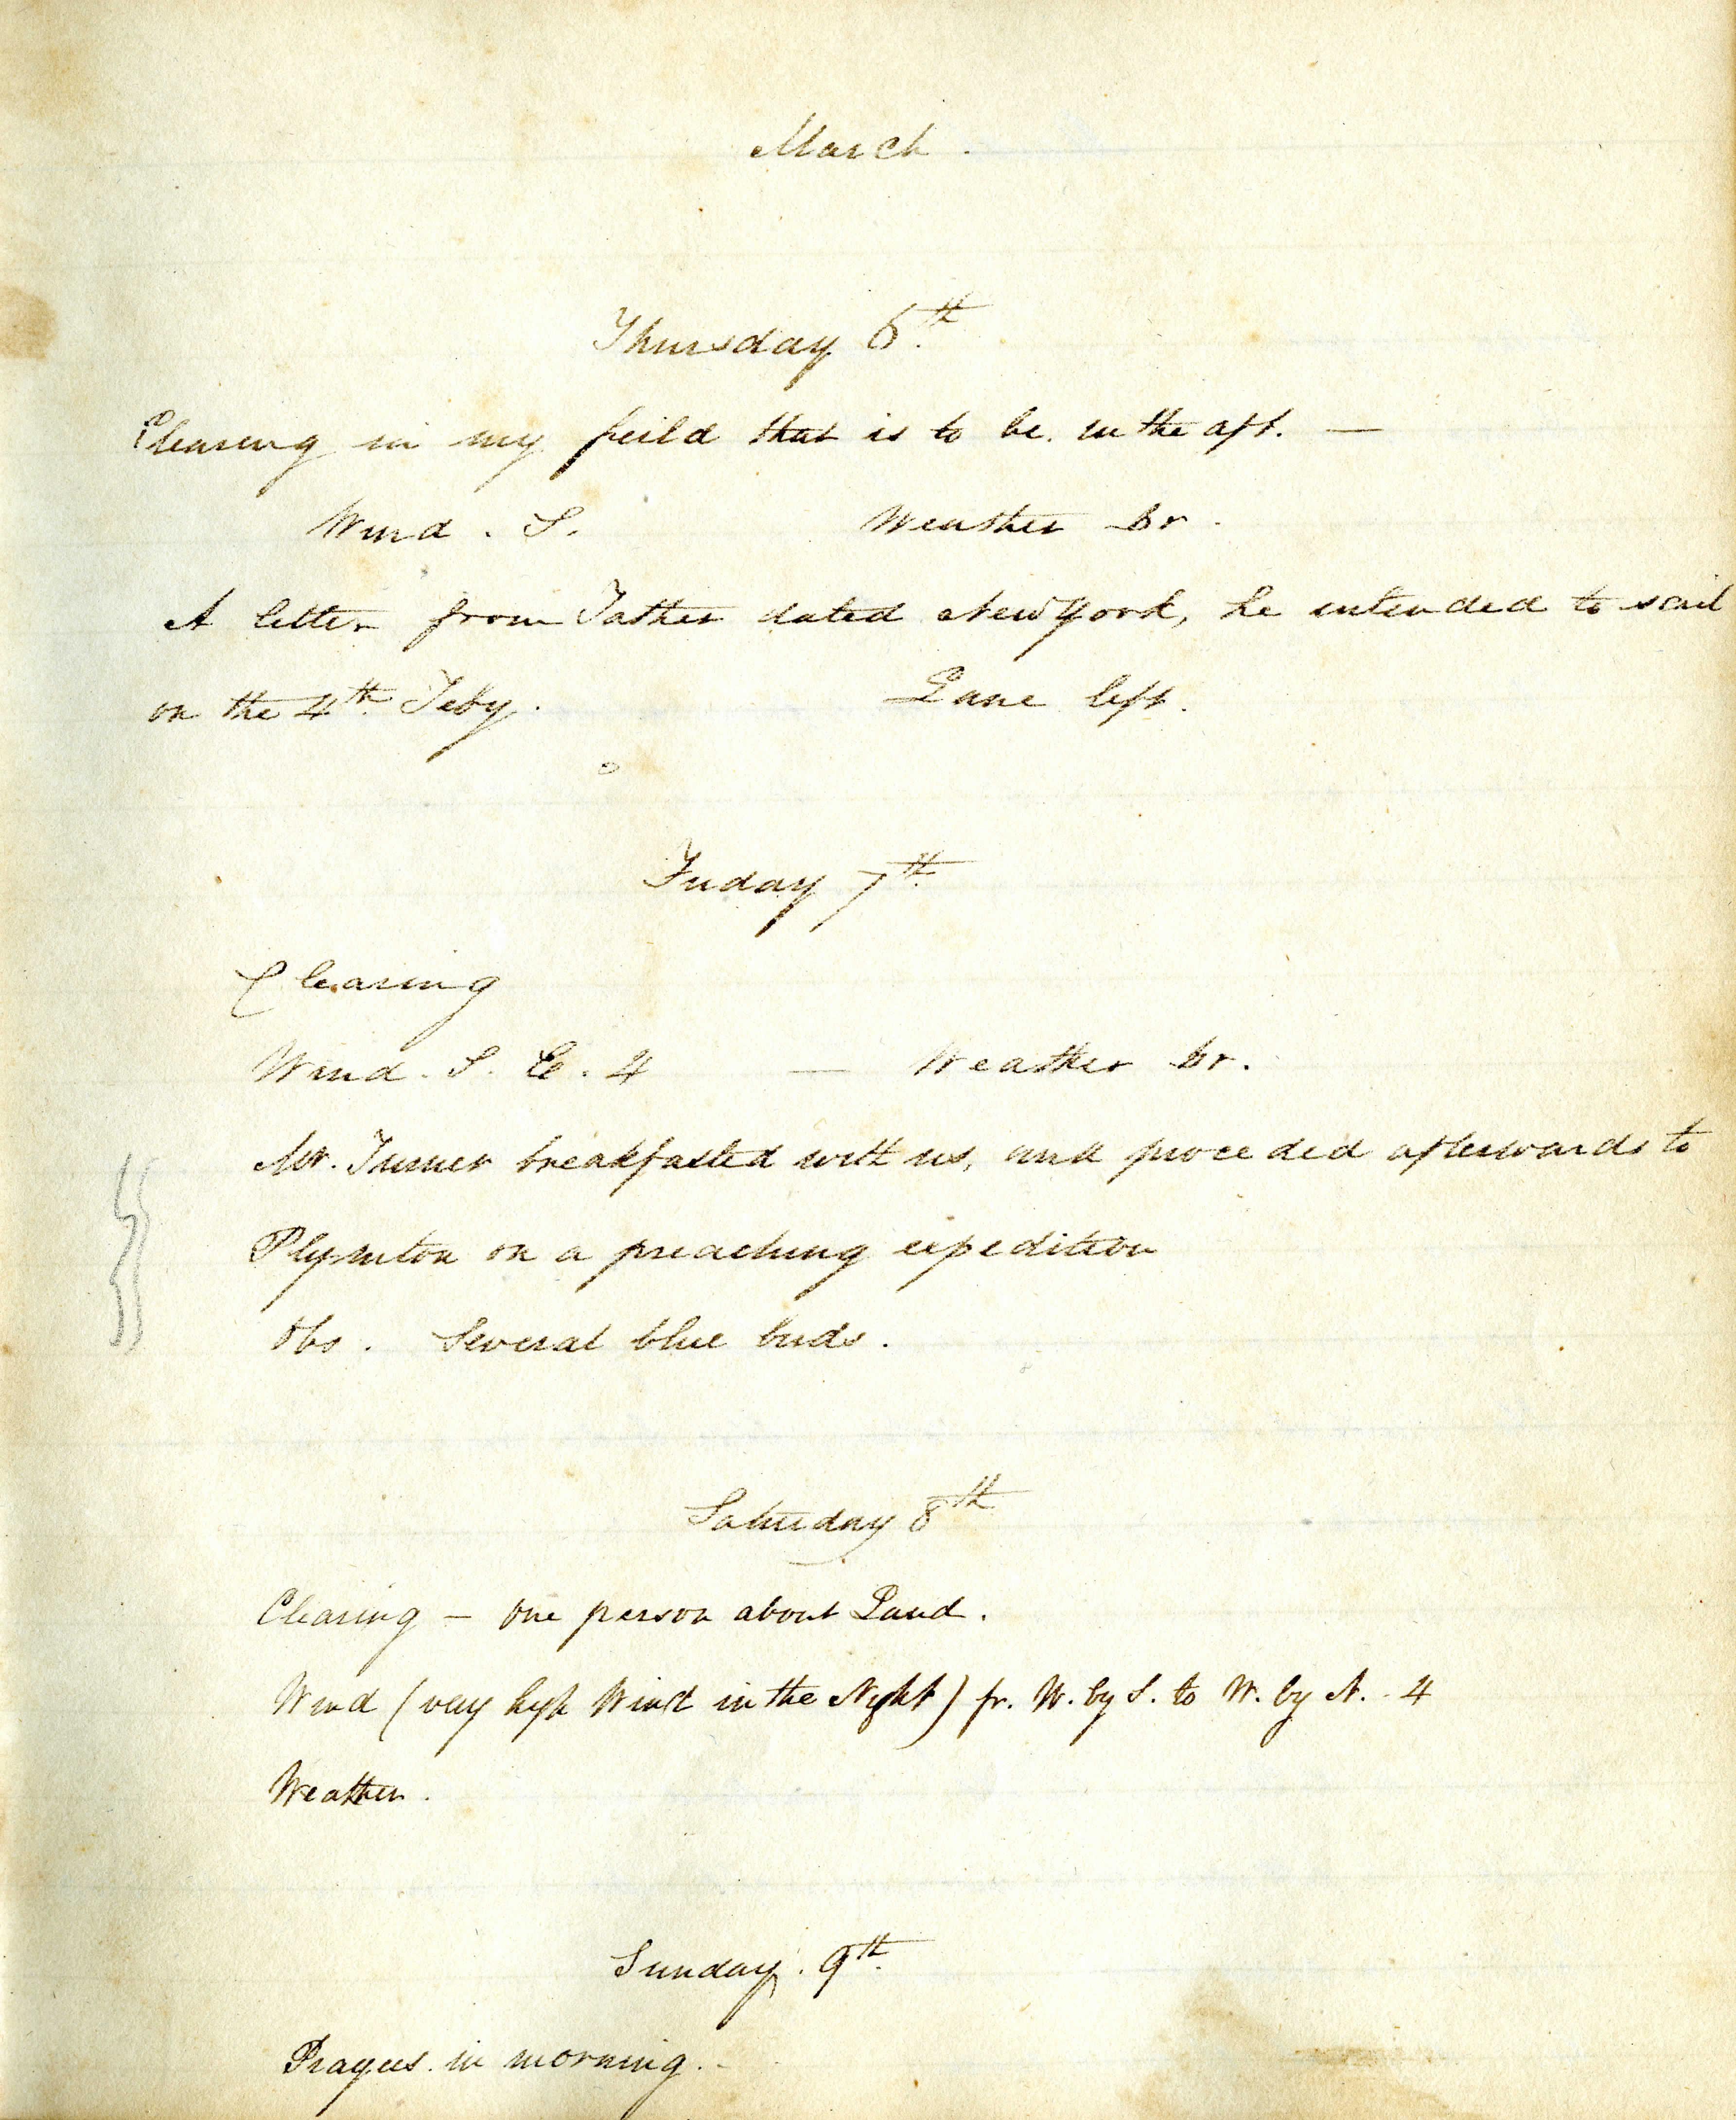 March.
Thursday 6th.
Clearing in my feild that is to be. in the aft. —
Wind. S. Weather br.
A letter from Father dated New York, he intended to sail
on the 4th. Feby. Lane left.
Friday 7th.
Clearing
Wind. S. E. 4 — Weather br.
Mr. Turner breakfasted with us, and proceeded afterwards to
Plymton on a preaching expedition
Obs. Several blue birds.
Saturday 8th
Clearing — one person about Land.
Wind (very high Wind in the Night) fr. W. by S. to W. by N. - 4
Weather.
Sunday. 9th.
Prayers in morning. -